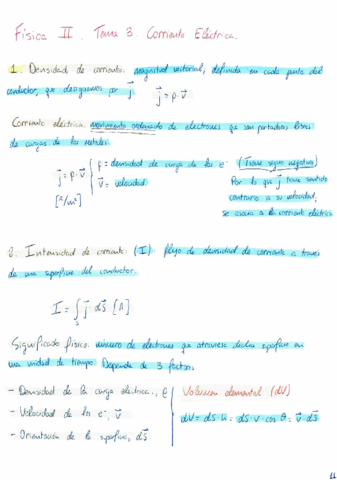 Física II. Tema 3. Corriente Eléctrica.
1. Densidad de corriente: magnitud vectorial, definida en cada punto del
conductor, que designamos por j⃗. j⃗ = ρ · v⃗
Corriente eléctrica: movimiento ordenado de electrones que son portadores libres
de cargas de los metales.
j⃗ = ρ · v⃗ { ρ = densidad de carga de los e⁻ (Tiene signo negativo)
v⃗ = velocidad
[A/m²]
Por lo que j⃗ tiene sentido
contrario a su velocidad,
se asocia a la corriente eléctrica
2. Intensidad de corriente: (I): flujo de densidad de corriente a través
de una superficie del conductor.
I = ∫ₛ j⃗ · dS⃗ [A]
Significado físico: número de electrones que atraviesa dicha superficie en
una unidad de tiempo. Depende de 3 factores:
- Densidad de la carga eléctrica, ρ
- Velocidad de los e⁻, v⃗
- Orientación de la superficie, dS⃗
Volumen elemental (dV)
dV = dS · h = dS · v · cos θ = v⃗ · dS⃗